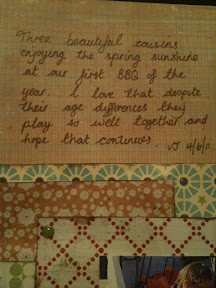 Three beautiful cousins
enjoying the spring sunshine
at our first BBQ of the
year. I love that despite
their age differences they
play so well together and
hope that continues.